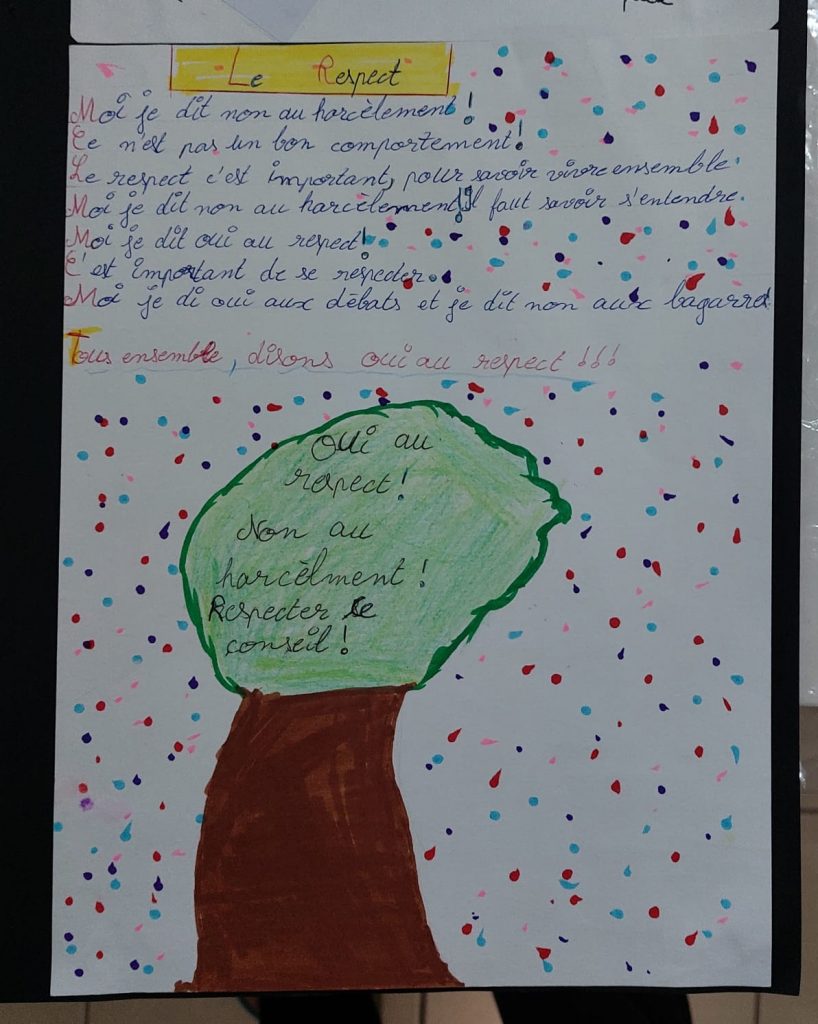 Le Respect
Moi je dit non au harcèlement !
Ce n'est pas un bon comportement!
Le respect c'est important, pour savoir vivre ensemble.
Moi je dit non au harcèlement! Il faut savoir s'entendre.
Moi je dit oui au respect!
C'est important de se respecter.
Moi je di oui aux débats et je dit non aux bagarre.
Tous ensemble, disons oui au respect !!!
Oui au
respect!
Non au
harcèlment !
Respecter le
conseil !